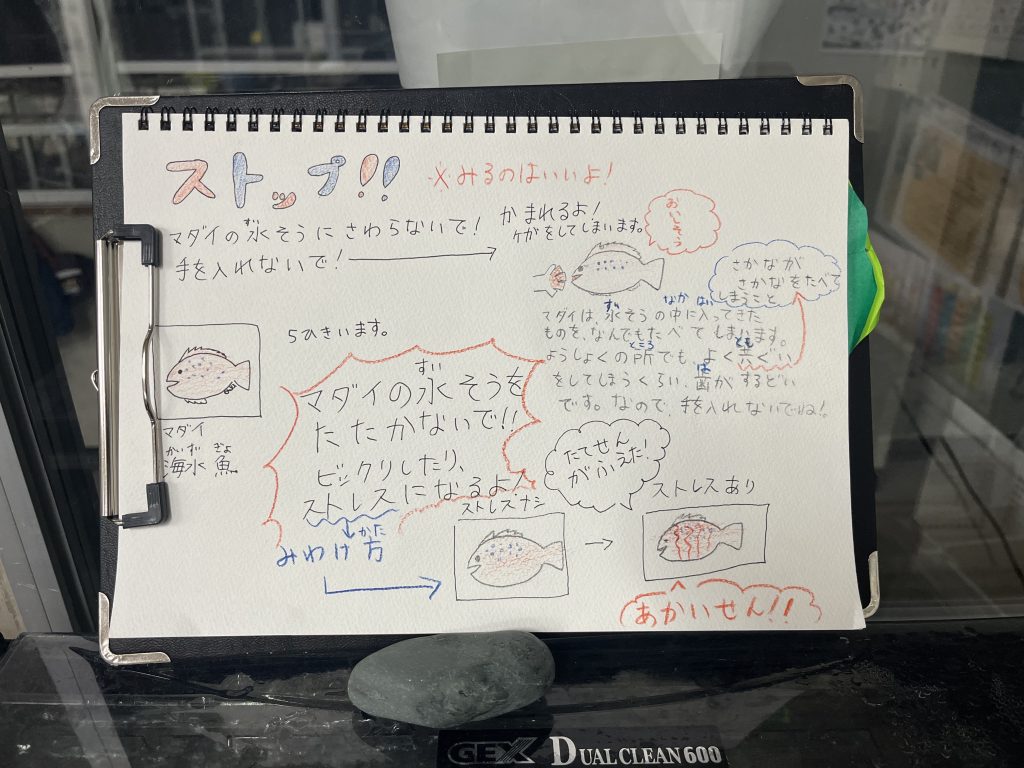 ストップ!!
※みるのはいいよ!
マダイの水そうにさわらないで!
手を入れないで!
かまれるよ!
ケガをしてしまいます。
おいしそう
さかなが
さかなをたべて
しまうこと
ずい
なか はい
マダイは、水そうの中に入ってきた
ものを、なんでもたべてしまいます。
ところ とも
ようしょくの所でも、よく共ぐい
は
をしてしまうくらい、歯がするどい
です。なので、手を入れないでね!
5ひきいます。
マダイ
かいずい ぎょ
海水魚
ずい
マダイの水そうを
たたかないで!!
ビックリしたり、
ストレスになるよ!
かた
みわけ方
たてせん
がふえた!
ストレスナシ
ストレスあり
あかいせん!!
GEX DUAL CLEAN 600